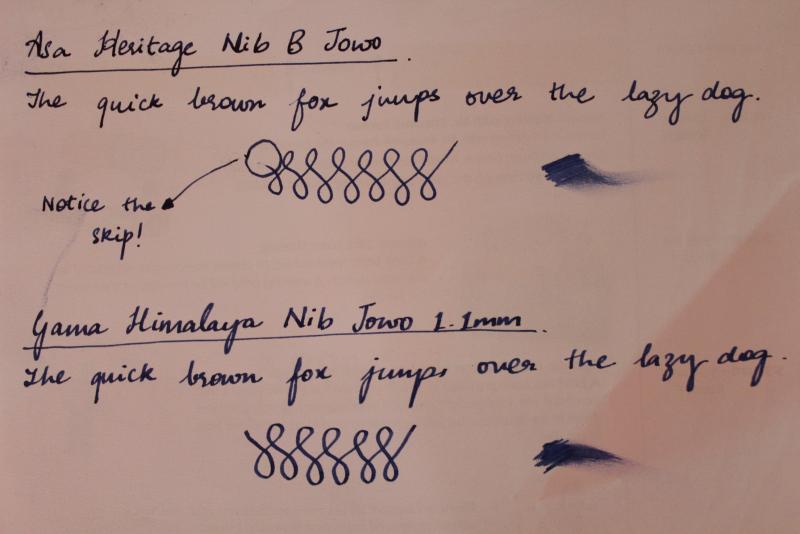 Asa Heritage Nib B Jowo.
The quick brown fox jumps over the lazy dog.
Notice the
skip!
Gama Himalaya Nib Jowo 1.1mm.
The quick brown fox jumps over the lazy dog.